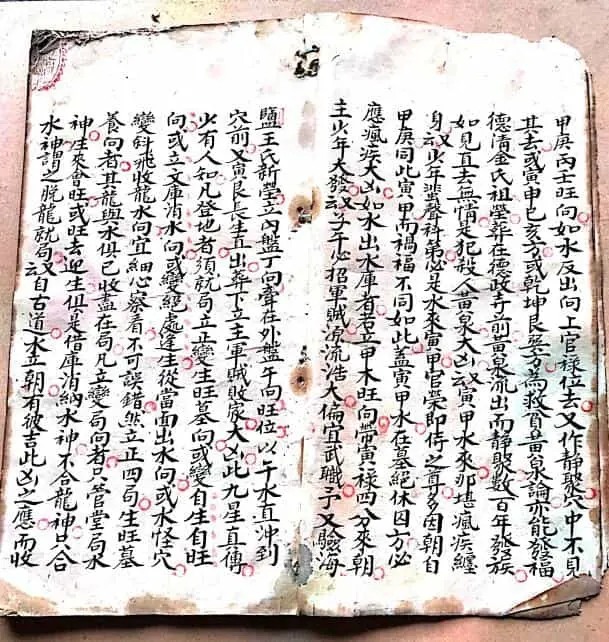 甲庚丙壬旺向如水反出向上官祿位去又作靜聚穴中不見
其去或寅申巳亥方或乾坤艮巽方為救貧黃泉論亦能發福
德清金氏祖塋葬在德政寺前黃泉流出而靜聚數百年發族
如見直去無情是犯殺人黃泉大凶又云寅甲水來那堪瘋疾纏
身又云少年蜚聲科第必是水來寅甲官榮即侍之尊多因朝自
甲庚同此寅甲而禍福不同如此蓋寅甲水在墓絕休囚方必
應瘋疾大凶如水出水庫者若立甲木旺向帶寅祿四分來朝
主少年大發又云子午必招軍賊流浩大偏宜武職子又驗海
鹽王氏新塋立內盤丁向牽在外盤午向旺位以午水直沖到
穴前又寅艮長生直出葬下立主軍賊敗家大凶此九星直傳
少有人知凡登地者須就局立正變生旺墓向或變自生自旺
向或立文庫消水向或變絕處逢生從當面出水向或水怪穴
變斜飛收龍水向宜細心察看不可誤錯然立正四局生旺墓
養向者其龍與水俱已收盡在局凡立變局向者只管堂局水
神生來會旺或旺去迎生俱是借庫消納水神不合龍神只合
水神謂之脫龍就局又云自古道水立朝有彼吉此凶之應而收